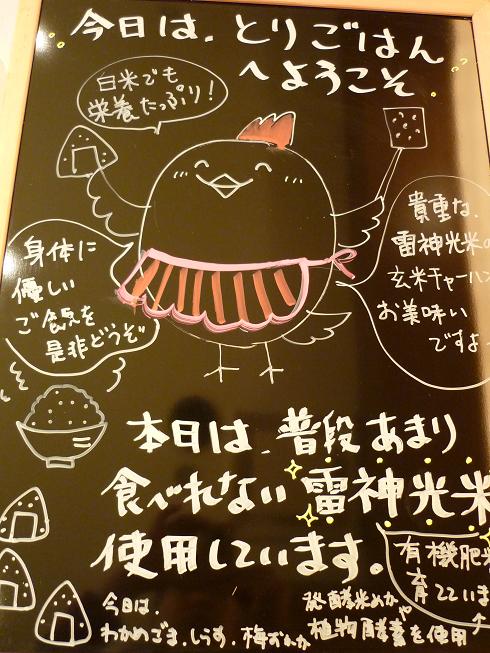 今日は、とりごはん
へようこそ
白米でも
栄養たっぷり！
貴重な、
雷神光米の
玄米チャーハン
お美味い
ですよ
身体に
優しい
ご飯を
是非どうぞ
本日は、普段あまり
食べれない雷神光米
使用しています。
有機肥
育ています
今日は、
わかめごま、しらす、梅おかか
発酵米ぬか
植物酵素を使用